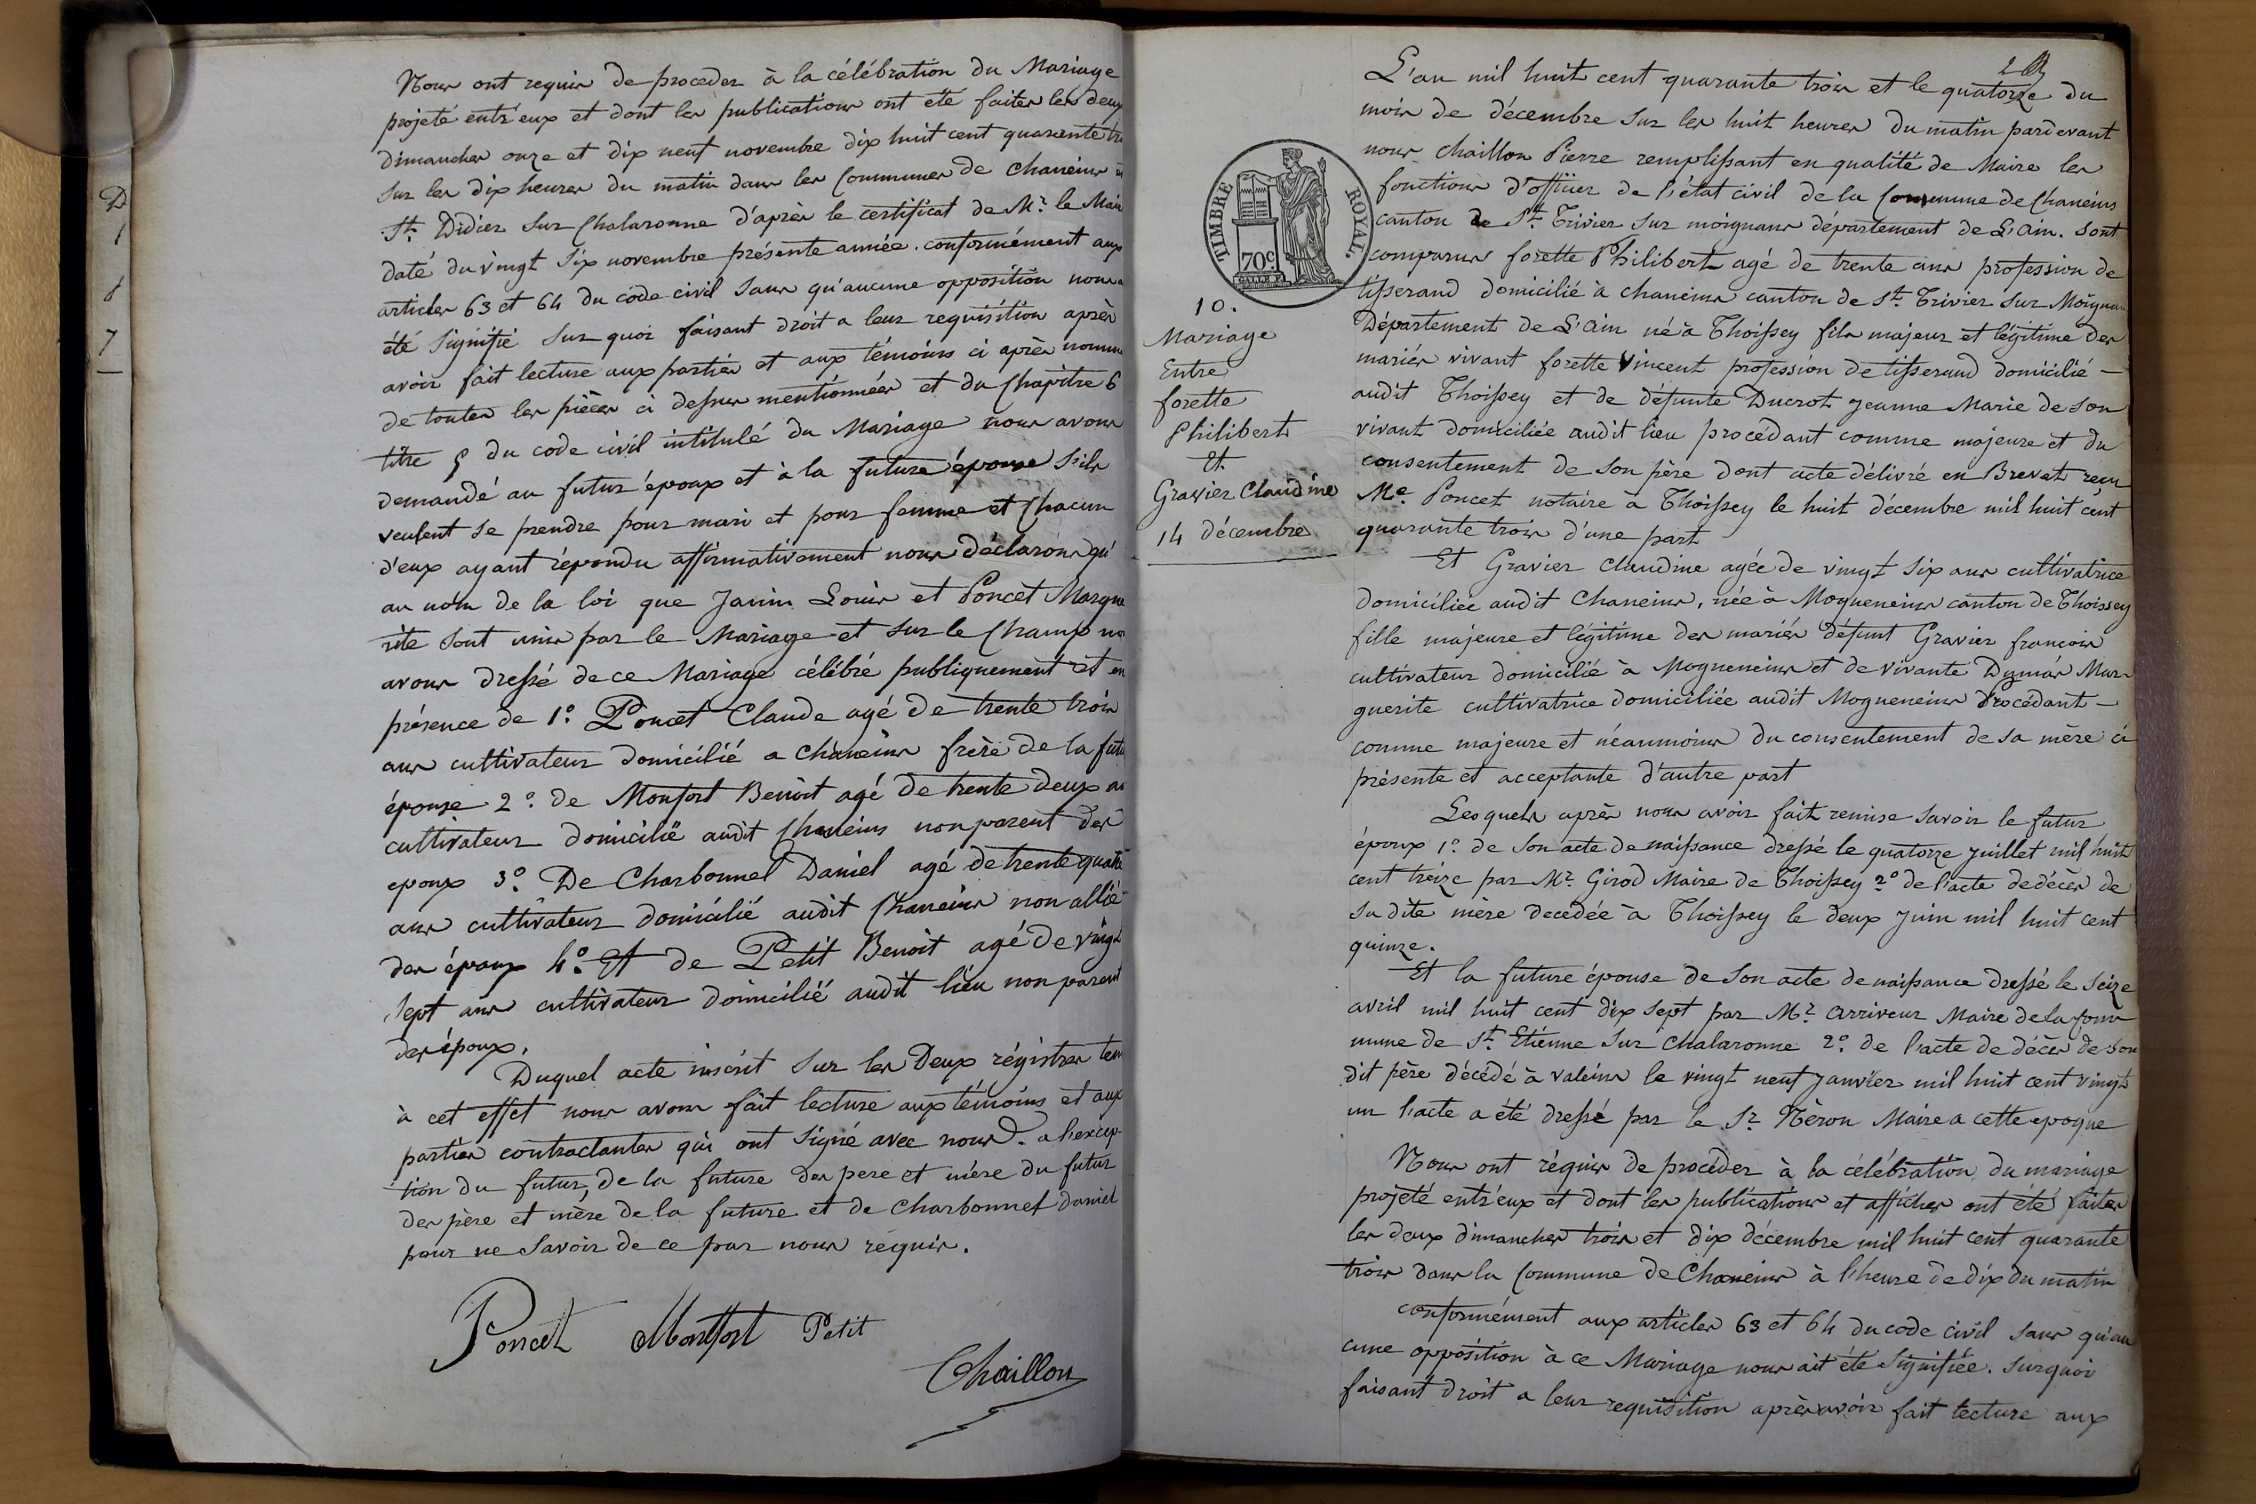 D
1
6
7
Nous ont requis de proceder à la célébration du Mariage
projeté entr'eux et dont les publications ont été faites les deux
dimanches onze et dix neuf novembre dix huit cent quarente
sur les dix heures du matin dans les Communes de Chaneins
St. Didier sur Chalaronne d'après le certificat de Mr. le Mair
daté du vingt six novembre présente année. conformément aux
articles 63 et 64 du code civil sans qu'aucune opposition nous
été signifié sur quoi faisant droit a leur requisition après
avoir fait lecture aux parties et aux témoins ci après nommé
de toutes les pièces ci dessus mentionnées et du Chapitre 6
titre 5 du code civil intitulé du Mariage nous avons
demandé au futur époux et à la future épouse s'ils
veulent se prendre pour mari et pour femme et Chacun
d'eux ayant répondu affirmativement nous déclarons qu'
au nom de la loi que Janin Louis et Poncet Margue
rite sont unis par le Mariage et sur le Champ
avons dressé de ce Mariage célébré publiquement et en
présence de 1o. Poncet Claude agé de trente trois
ans cultivateur domicilié a Chaneins frère de la futu
épouse 2o. de Monfort Benoit agé de trente deux
cultivateur domicilié audit Chaneins non parent des
epoux 3o. De Charbonnel Daniel agé de trente quatre
ans cultivateur domicilié audit Chaneins non allié
des époux 4o. Et de Petit Benoit agé de vingt
sept ans cultivateur domicilié audit lieu non parent
des époux.
Duquel acte inscrit sur les deux régistres
à cet effet nous avons fait lecture aux témoins et aux
parties contractantes qui ont signé avec nous. a l'excep-
tion du futur, de la future des pere et mère du futur
des père et mère de la future et de Charbonnel daniel
pour ne savoir de ce par nous requis.
Poncet Montfort Petit
Chaillon
TIMBRE ROYAL.
70c
10.
Mariage
Entre
forette
Philibert
Et
Gravier Claudine
14 décembre
L'an mil huit cent quarante trois et le quatorze du
mois de décembre sur les huit heures du matin pardevant
nous Chaillon Pierre remplissant en qualité de Maire les
fonctions d'officier de l'état civil de la Commune de Chaneins
canton de St. Trivier sur moignans département de L'ain. Sont
comparus forette Philibert agé de trente ans profession de
tisserand domicilié à Chaneins canton de St. Trivier sur Moignans
Département de L'ain né à Thoissey fils majeur et légitime des
mariés vivant forette Vincent profession de tisserand domicilié —
audit Thoissey et de défunte Ducrot Jeanne Marie de son
vivant domiciliée audit lieu procédant comme majeure et du
consentement de son père dont acte délivré en Brevet reçu
Me. Poncet notaire à Thoissey le huit décembre mil huit cent
quarante trois d'une part
Et Gravier Claudine agée de vingt six ans cultivatrice
domiciliée audit Chaneins, née à Mogneneins canton de Thoissey
fille majeure et légitime des mariés défunt Gravier françois
cultivateur domicilié à Mogneneins et de vivante Mar-
guerite cultivatrice domiciliée audit Mogneneins Procédant —
comme majeure et néanmoins du consentement de sa mère ci
présente et acceptante d'autre part
Lesquels après nous avoir fait remise savoir le futur
époux 1o. de son acte de naissance dressé le quatorze juillet mil huit
cent treize par Mr. Girod Maire de Thoissey 2o de l'acte de décès de
sa dite mère decédée à Thoissey le deux Juin mil huit cent
quinze.
Et la future épouse de son acte de naissance dressé le Seize
avril mil huit cent dix sept par Mr. arriveur Maire de la Com-
mune de St. Etienne sur Chalaronne 2o. de l'acte de décès de son
dit père décédé à valeins le vingt neuf janvier mil huit cent vingt
un l'acte a été dressé par le Sr. Néron Maire a cette epoque
Nous ont réquis de procéder à la célébration du mariage
projeté entr'eux et dont les publications et affiches ont été faites
les deux dimanches trois et dix décembre mil huit cent quarante
trois dans la Commune de Chaneins à l'heure de dix du matin
conformément aux articles 63 et 64 du code civil sans qu'au
cune opposition à ce Mariage nous ait été signifiée. surquoi
faisant droit a leur requisition après avoir fait lecture aux